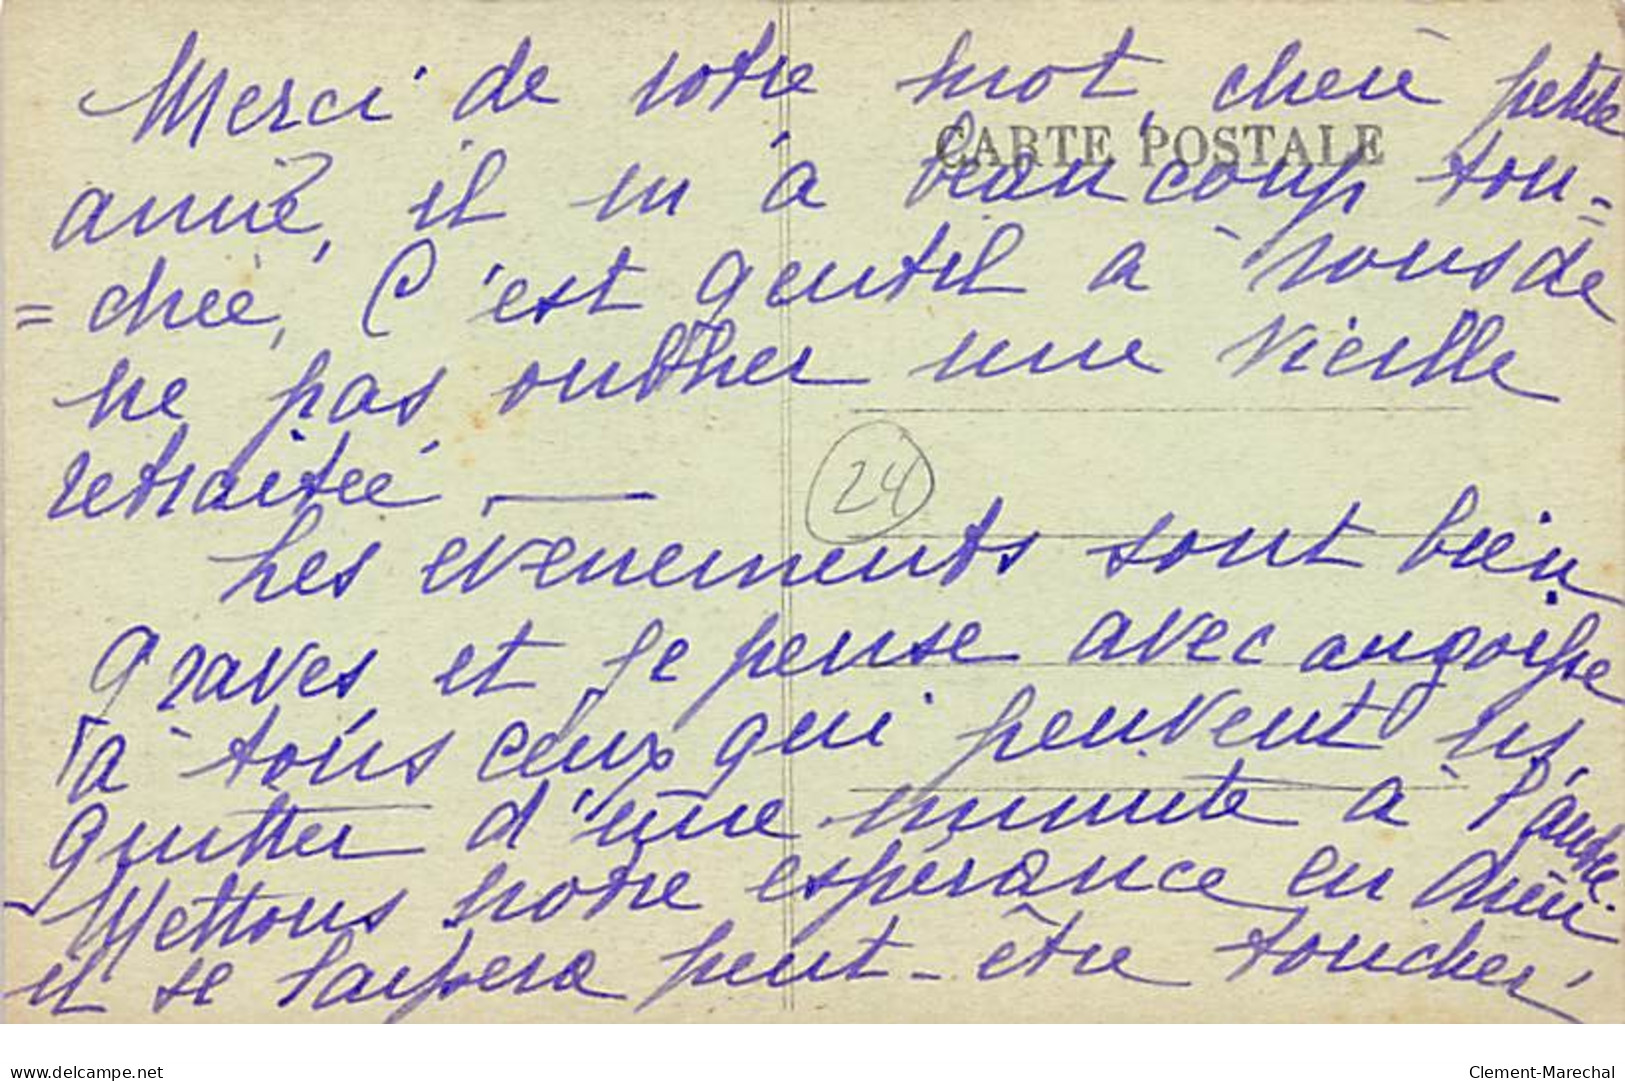 Merci de votre mot, chère petite
CARTE POSTALE
amie, il m'a beaucoup tou=
=chée, C'est gentil à vous de
ne pas oublier une vieille
retraitée —
24
Les evenements sont bien
graves et je pense avec angoisse
à tous ceux qui peuvent us
quitter d'une minute à l'autre.
Mettons notre espérance en Dieu
il se laissera peut-être toucher,
delcampe.net
Clement-Marechal